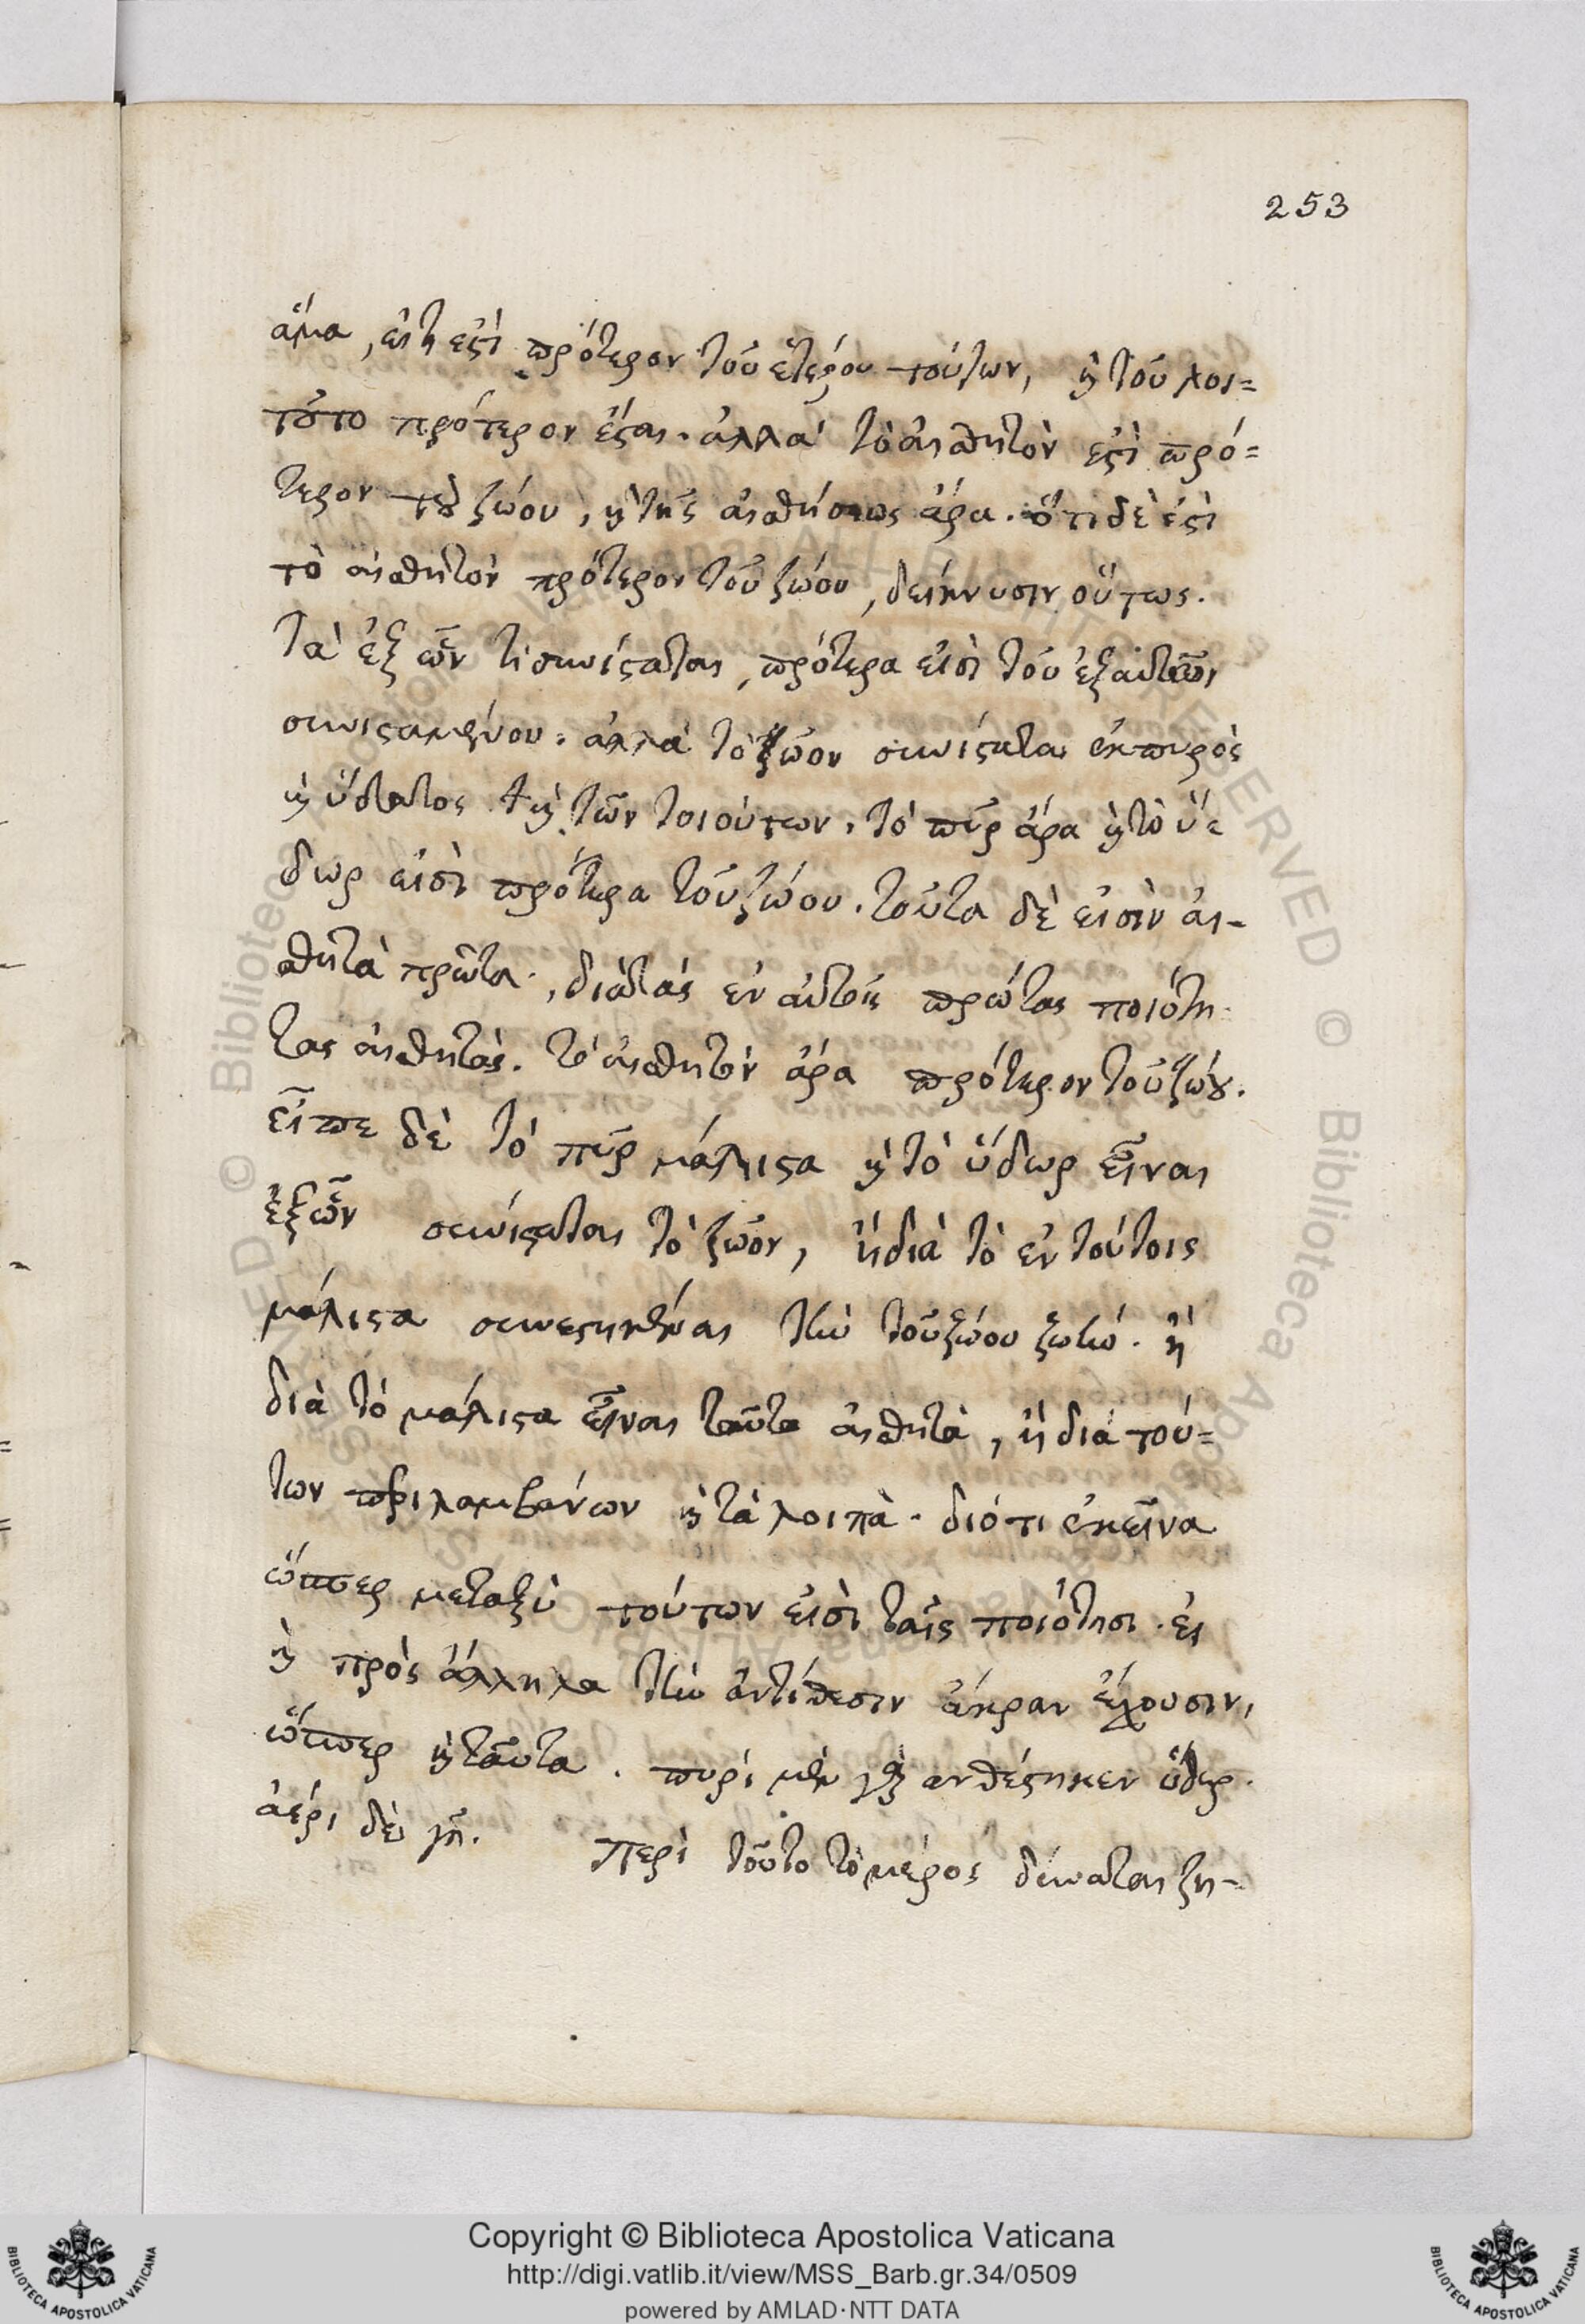 253
ἅμα, εἴ τι ἐστὶ πρότερον τοῦ ἑτέρου τούτων, καὶ τοῦ λοι=
τοῦτο πρότερον ἔσται. ἀλλὰ τὸ αἰσθητὸν ἐστὶ πρό=
τερον τοῦ ζώου, καὶ τῆς αἰσθήσεως ἄρα. ὅτι δὲ ἐστὶ
τὸ αἰσθητὸν πρότερον τοῦ ζώου, δείκνυσιν οὕτως.
Τὰ ἐξ ὧν τὶ συνίσταται, πρότερα εἰσὶ τοῦ ἐξ αὐτῶν
συνισταμένου. ἀλλὰ τὸ ζῶον συνίσταται ἐκ πυρὸς
καὶ ὕδατος καὶ τῶν τοιούτων. τὸ πῦρ ἄρα καὶ τὸ ὕ=
δωρ εἰσὶ πρότερα τοῦ ζώου. ταῦτα δὲ εἰσὶν αἰ-
σθητὰ πρῶτα, διὰ τὰς ἐν αὐτοῖς πρώτας ποιότη-
τας αἰσθητάς. τὸ αἰσθητὸν ἄρα πρότερον τοῦ ζώου.
εἶπε δὲ τὸ πῦρ μάλιστα καὶ τὸ ὕδωρ εἶναι
ἐξ ὧν συνίσταται τὸ ζῶον, ἢ διὰ τὸ ἐν τούτοις
μάλιστα συνεστηκέναι τὴν τοῦ ζώου ζωήν. ἢ
διὰ τὸ μάλιστα εἶναι ταῦτα αἰσθητὰ, ἢ διὰ τού=
των περιλαμβάνων καὶ τὰ λοιπὰ. διότι ἐκεῖνα
ὥσπερ μεταξὺ τούτων εἰσὶ ταῖς ποιότησι. εἰ
καὶ πρὸς ἄλληλα τὴν ἀντίθεσιν ἄκραν ἔχουσιν,
ὥσπερ καὶ ταῦτα. πυρὶ μὲν γὰρ ἀνθέστηκεν ὕδωρ.
ἀέρι δὲ γῆ. Περὶ τοῦτο τὸ μέρος δύναται ζη-
Copyright © Biblioteca Apostolica Vaticana
http://digi.vatlib.it/view/MSS_Barb.gr.34/0509
powered by AMLAD·NTT DATA